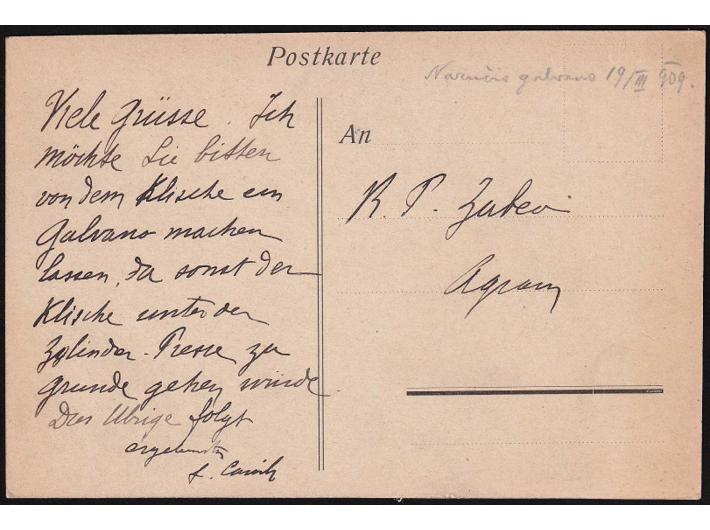 Postkarte
Naručio galvano 19/III 909.
Viele Grüsse. Ich
möchte Sie bitten
von dem Klische ein
Galvano machen
lassen, da sonst der
Klische unter der
Zylinder-Presse zu
grunde gehen würde
Das Übrige folgt
ergebenster
An
R. P.
Agram